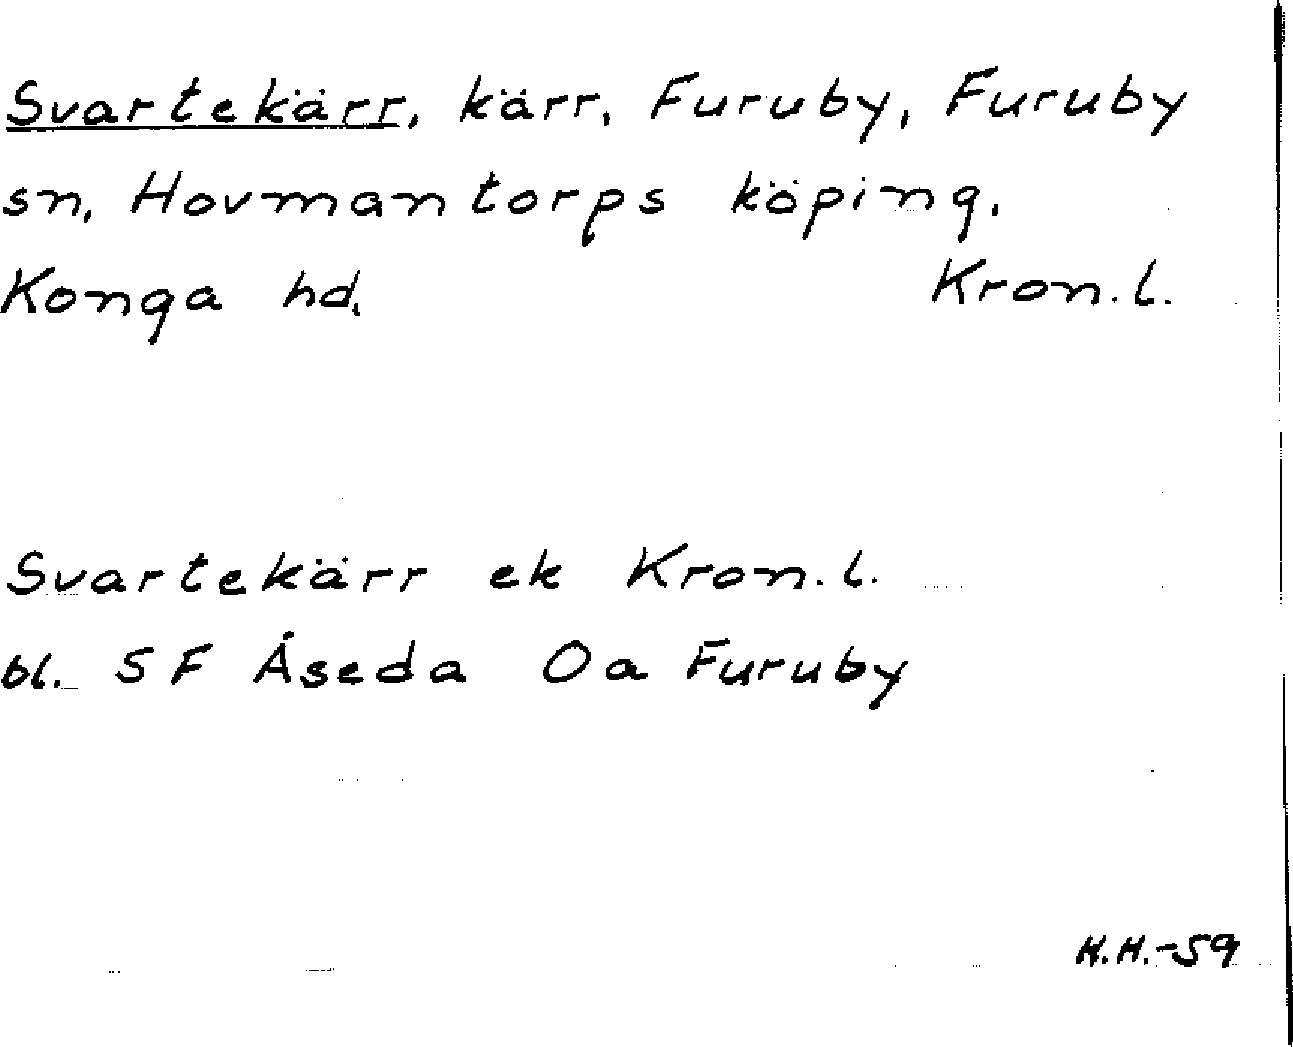 Svartekärr, kärr, Furuby, Furuby
sn, Hovmantorps köping,
Konga hd, Kron.l.
Svartekärr ek Kron.l.
bl. 5 F Åseda Oa Furuby
H.H.-59